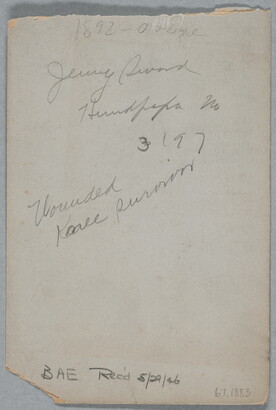 1892 -
Jenny Sword
Hunkpapa No
3197
Wounded
Knee survivor
BAE Rec'd 5/29/46
67,1883